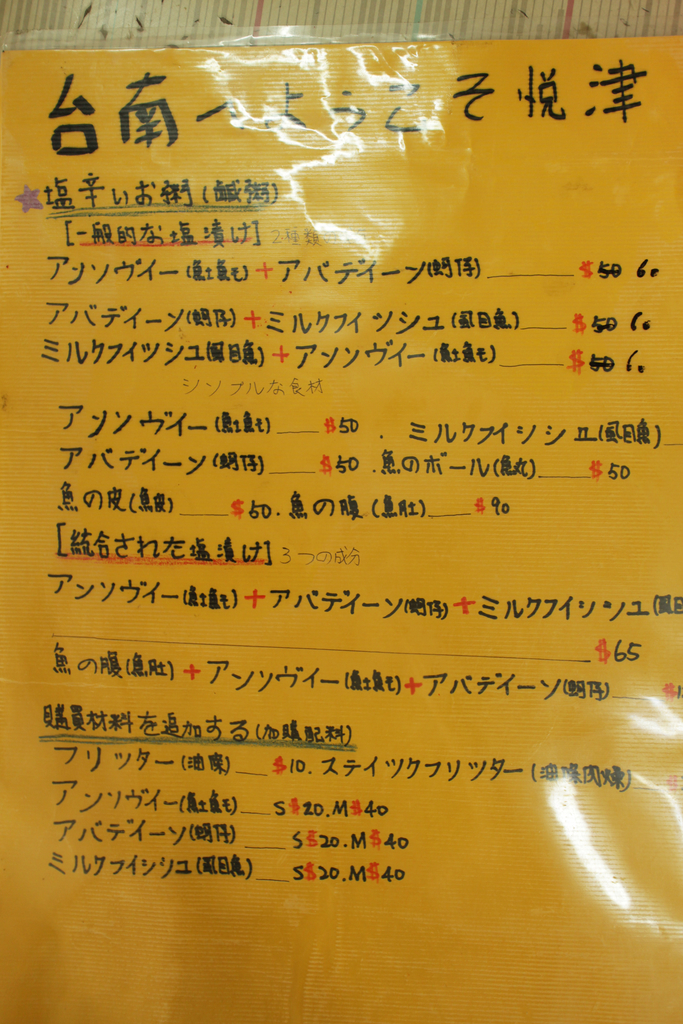 台南へようこそ悦津
塩辛いお粥(鹹粥)
[一般的な塩漬け] 2種類
アンソヴイー(魚土魚モ)+アバデイーン(蚵仔)$50 60
アバデイーン(蚵仔)+ミルクフイツシユ(虱目魚)$50 60
ミルクフイツシユ(虱目魚)+アンソヴイー(魚土魚モ)$50 60
シンプルな食材
アンソヴイー(魚土魚モ)$50. ミルクフイシシユ(虱目魚)
アバデイーン(蚵仔)$50.魚のボール(魚丸)$50
魚の皮(魚皮)$50.魚の腹(魚肚)$90
[統合された塩漬け] 3つの成分
アンソヴイー(魚土魚モ)+アバデイーン(蚵仔)+ミルクフイシシユ(虱目
$65
魚の腹(魚肚)+アンソヴイー(魚土魚モ)+アバデイーン(蚵仔)$1
購買材料を追加する(加購配料)
フリツター(油條)$10.ステイツクフリツター(油條肉燥)$
アンソヴイー(魚土魚モ)S$20.M$40
アバデイーン(蚵仔)S$20.M$40
ミルクフイシシユ(虱目魚)S$20.M$40